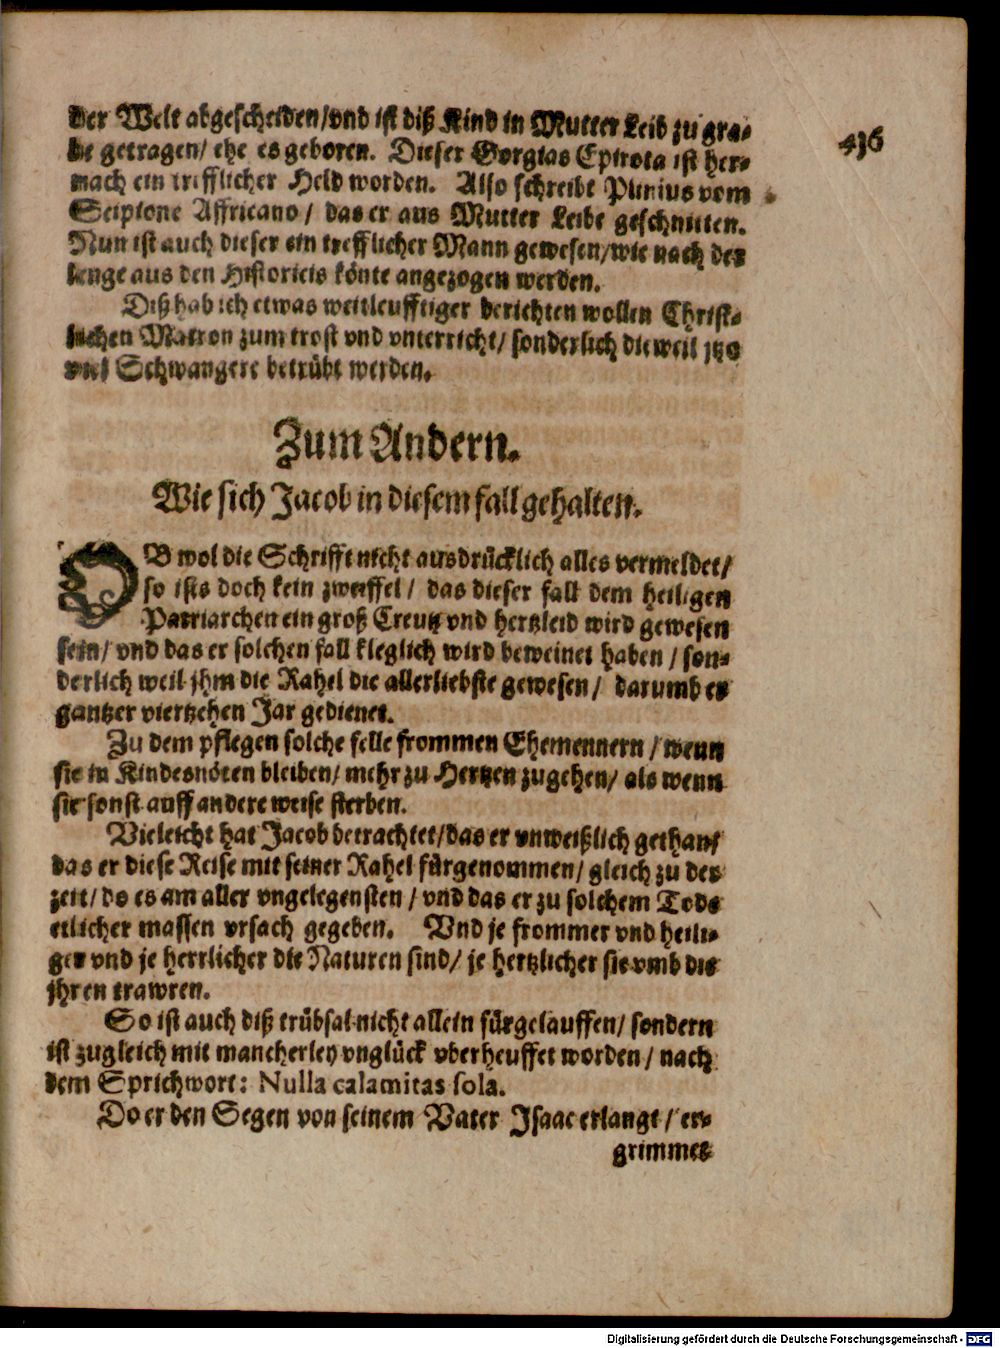 der Welt abgescheiden/vnd ist diß Kind in Mutter Leib zu gra-
be getragen/ ehe es geboren. Dieser Gorgias Epirota ist her-
nach ein trefflicher Held worden. Also schreibt Plinius vom
Scipione Affricano/ das er aus Mutter Leibe geschnitten.
Nun ist auch dieser ein trefflicher Mann gewesen/wie nach der
lenge aus den Historicis könte angezogen werden.
Diß hab ich etwas weitleufftiger berichten wollen Christ-
lichen Matron zum trost vnd vnterricht/ sonderlich dieweil jtzo
viel Schwangere betrübt werden.
Zum Andern.
Wie sich Jacob in diesem fall gehalten.
OB wol die Schrifft nicht ausdrücklich alles vermeldet/
so ists doch kein zweiffel/ das dieser fall dem heiligen
Patriarchen ein groß Creutz vnd hertzleid wird gewesen
sein/ vnd das er solchen fall kleglich wird beweinet haben/ son-
derlich weil jhm die Rahel die allerliebste gewesen/ darumb er
gantzer viertzehen Jar gedienet.
Zu dem pflegen solche felle frommen Ehemennern/ wenn
sie in Kindesnöten bleiben/ mehr zu Hertzen zugehen/ als wenn
sie sonst auff andere weise sterben.
Vieleicht hat Jacob betrachtet/das er vnweißlich gethan/
das er diese Reise mit seiner Rahel fürgenommen/ gleich zu der
zeit/ do es am aller vngelegensten/ vnd das er zu solchem Tode
etlicher massen vrsach gegeben. Vnd je frommer vnd heili-
ger vnd je herrlicher die Naturen sind/ je hertzlicher sie vmb die
jhren trawren.
So ist auch diß trübsal nicht allein fürgelauffen/ sondern
ist zugleich mit mancherley vnglück vberheuffet worden/ nach
dem Sprichwort: Nulla calamitas sola.
Do er den Segen von seinem Vater Isaac erlangt/ er-
grimmet
436
Digitalisierung gefördert durch die Deutsche Forschungsgemeinschaft - DFG